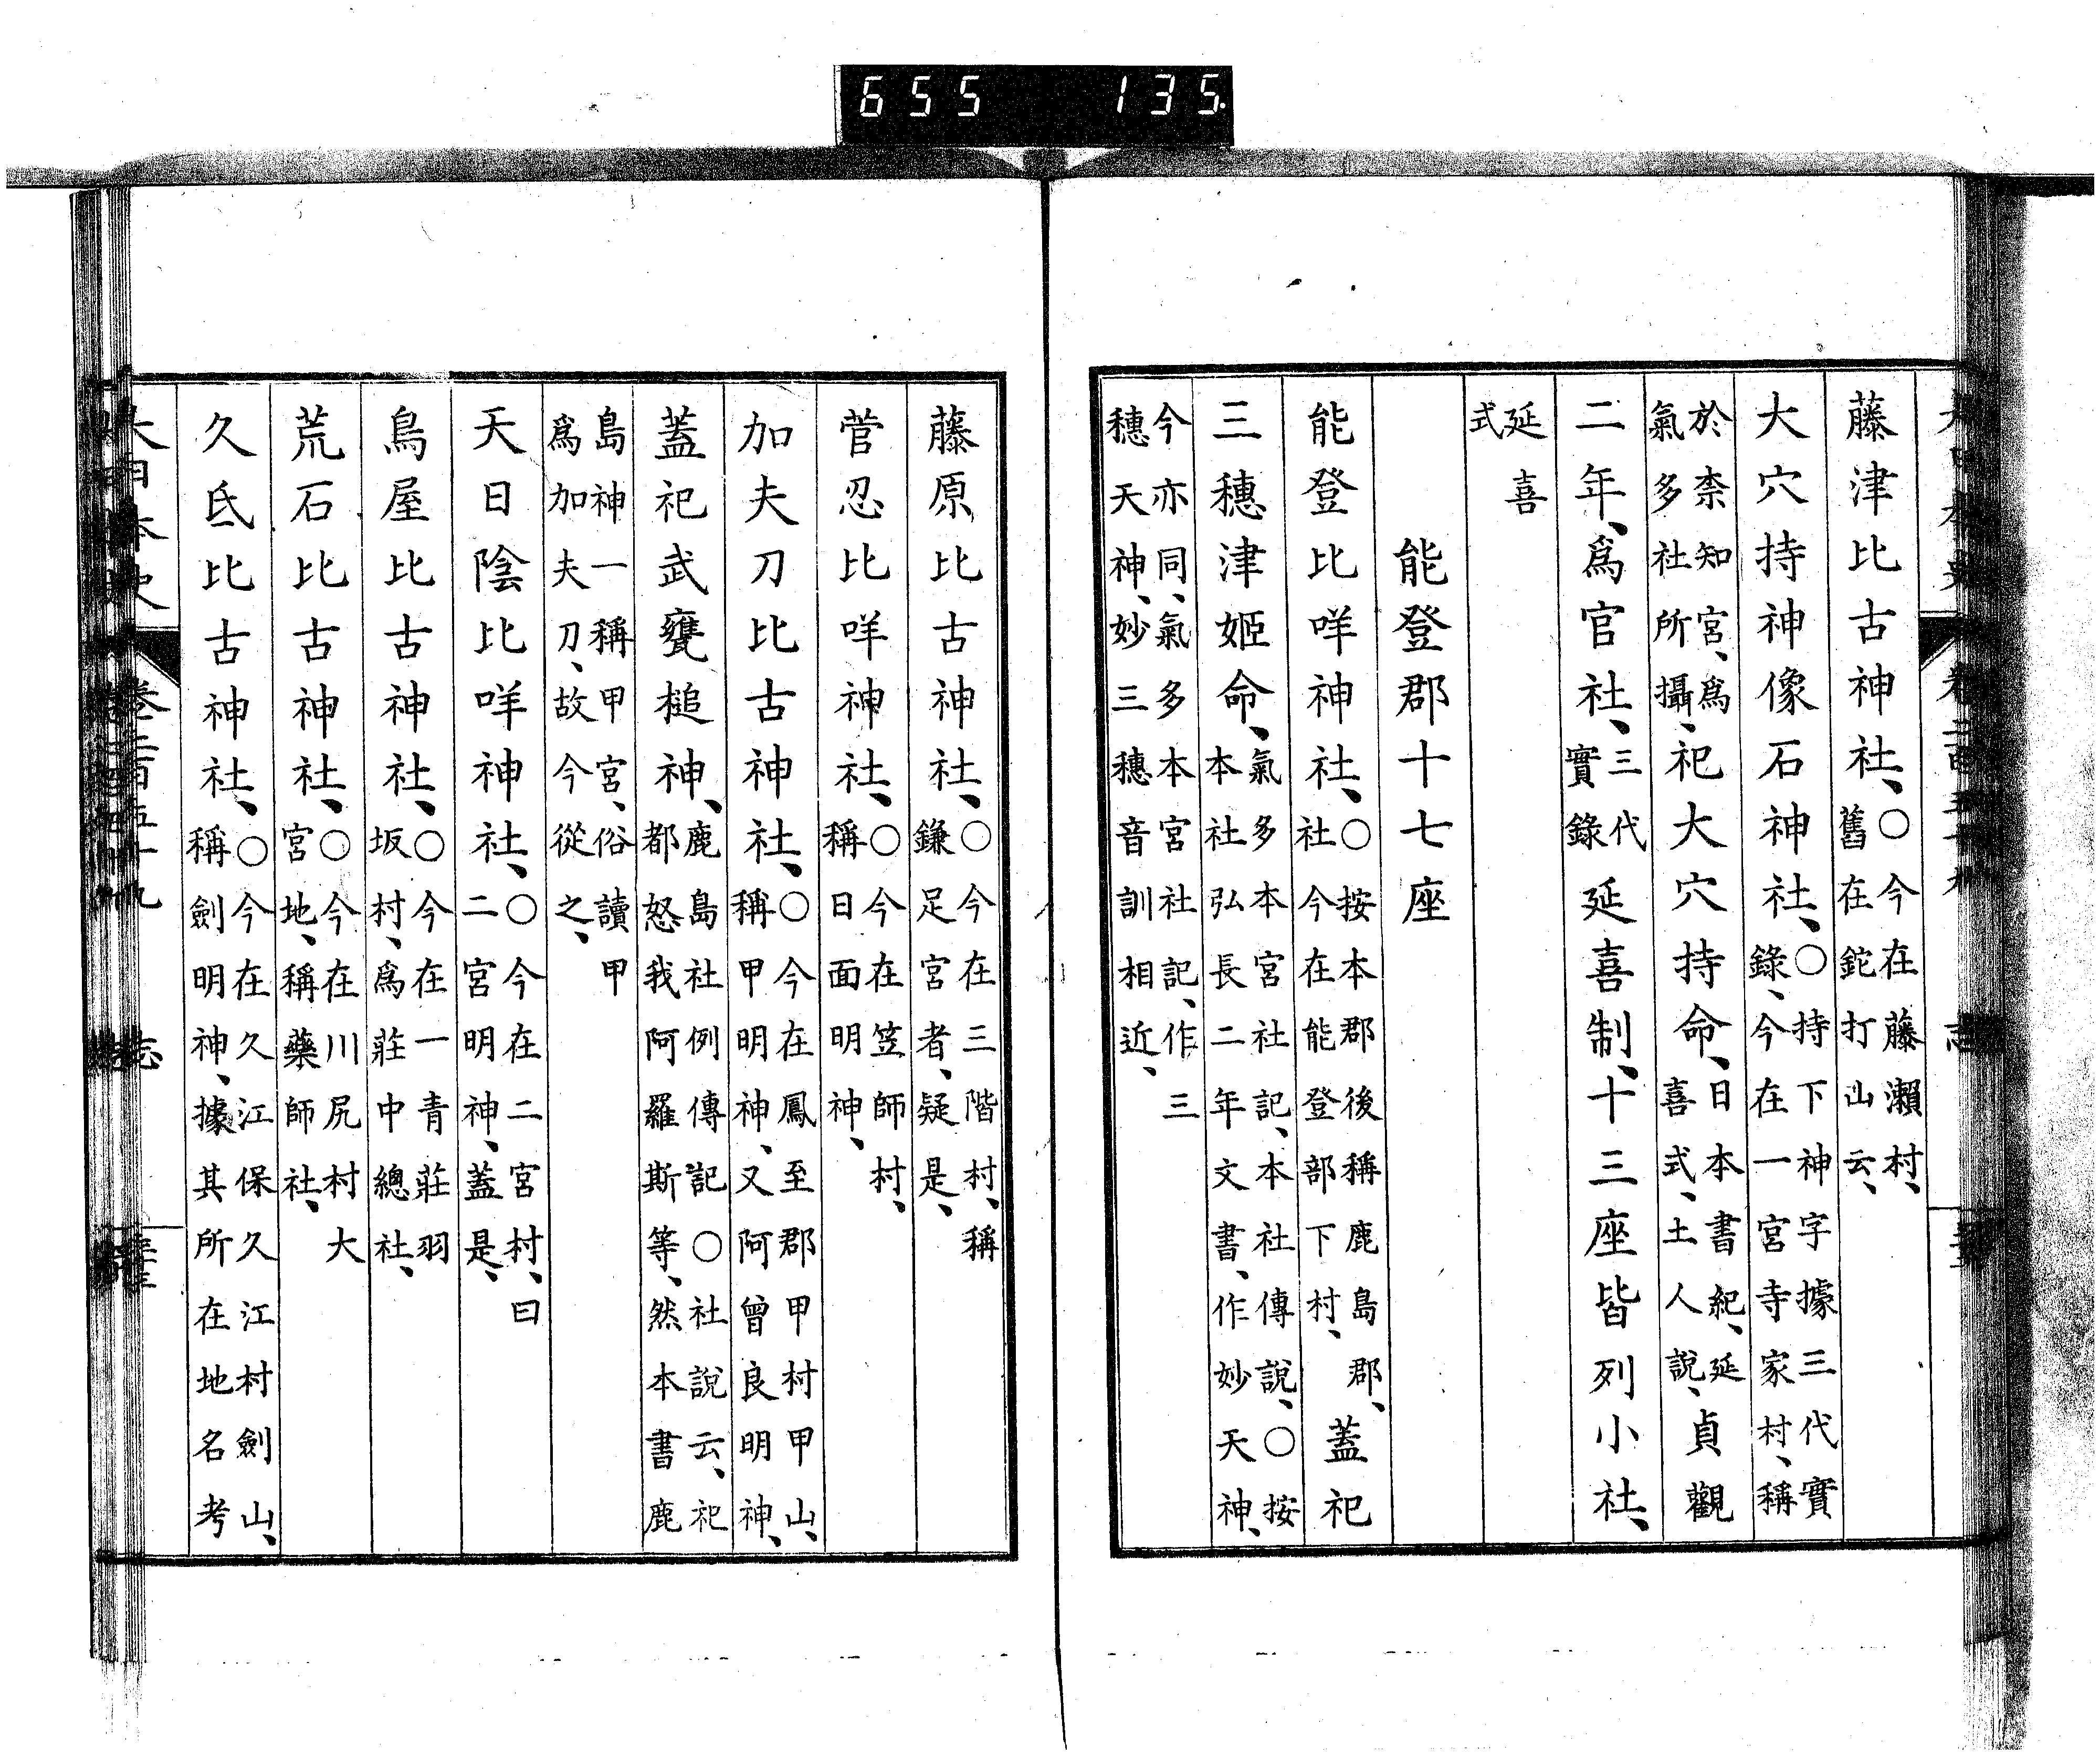 655 135
藤津比古神社、○今在藤瀨村、舊在鉈打山云、
大穴持神像石神社、○持下神字據三代實錄、今在一宮寺家村、稱
於柰知宮、爲氣多社所攝、祀大穴持命、日本書紀、延喜式、土人說、貞觀
二年、爲官社、三代實錄延喜制、十三座皆列小社、
延喜式
能登郡十七座
能登比咩神社、○按本郡後稱鹿島郡、社今在能登部下村、蓋祀
三穗津姬命、氣多本宮社記、本社傳說、○按本社弘長二年文書、作妙天神、
今亦同、氣多本宮社記、作三穗天神、妙三穗音訓相近、
藤原比古神社、○今在三階村、稱鎌足宮者、疑是、
菅忍比咩神社、○今在笠師村、稱日面明神、
加夫刀比古神社、○今在鳳至郡甲村甲山、稱甲明神、又阿曾良明神、
蓋祀武甕槌神、鹿島社例傳記○社說云、祀都怒我阿羅斯等、然本書鹿
島神一稱甲宮、俗讀甲爲加夫刀、故今從之、
天日陰比咩神社、○今在二宮村、曰二宮明神、蓋是、
鳥屋比古神社、○今在一青莊羽坂村、爲莊中總社、
荒石比古神社、○今在川尻村大宮地、稱藥師社、
久氐比古神社、○今在久江保久江村劍山、稱劍明神、據其所在地名考
大日本史 卷二百五十九 志